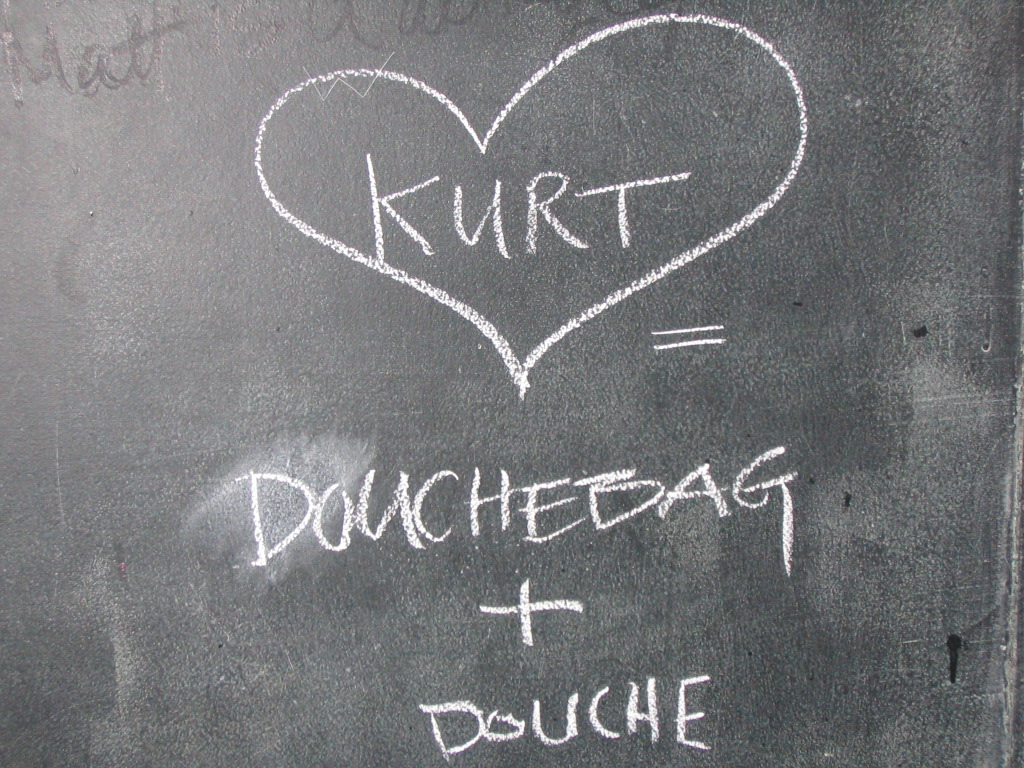 Matt
KURT
=
DOUCHEBAG
+
DOUCHE